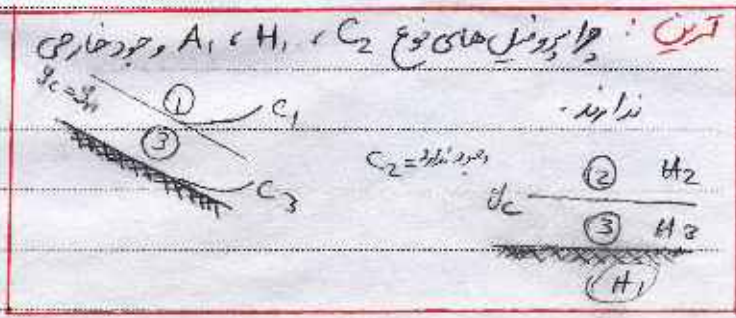 تمرین : چرا پروفیل های نوع C2 ، H1 ، A1 وجود خارجی
ندارند .
yc = yn
① C1
③
C3
C2 = وجود ندارد
② H2
yc
③ H3
H1